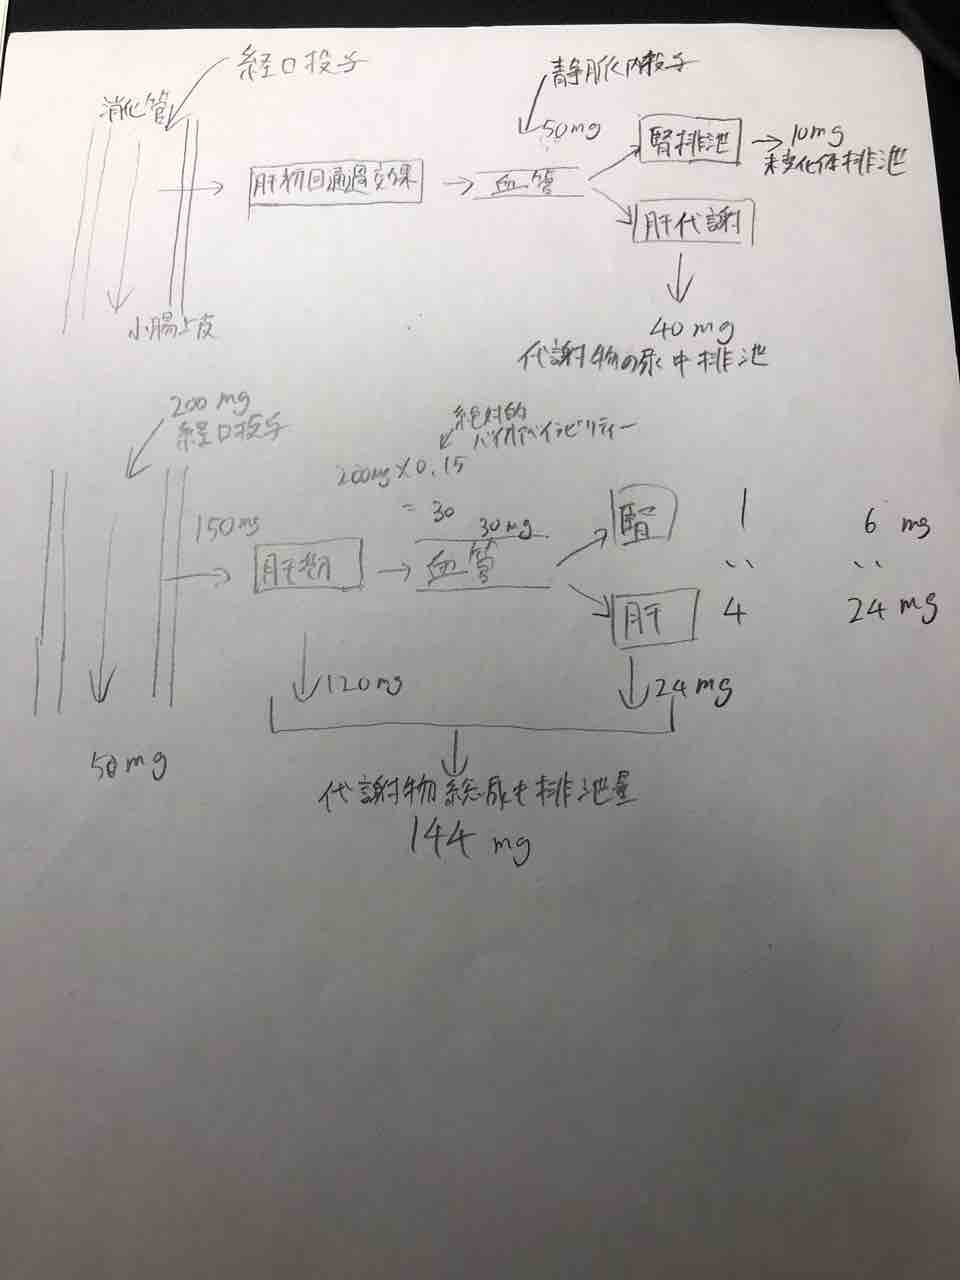 経口投与
消化管
静脈内投与
50mg
肝初回通過効果
血管
腎排泄
10mg
未変化体排泄
肝代謝
小腸上皮
40mg
代謝物の尿中排泄
200mg
経口投与
絶対的
バイオアベイラビリティー
200mg×0.15
=30
150mg
30mg
血管
腎
1
6mg
肝
4
24mg
120mg
24mg
50mg
代謝物総尿中排泄量
144mg